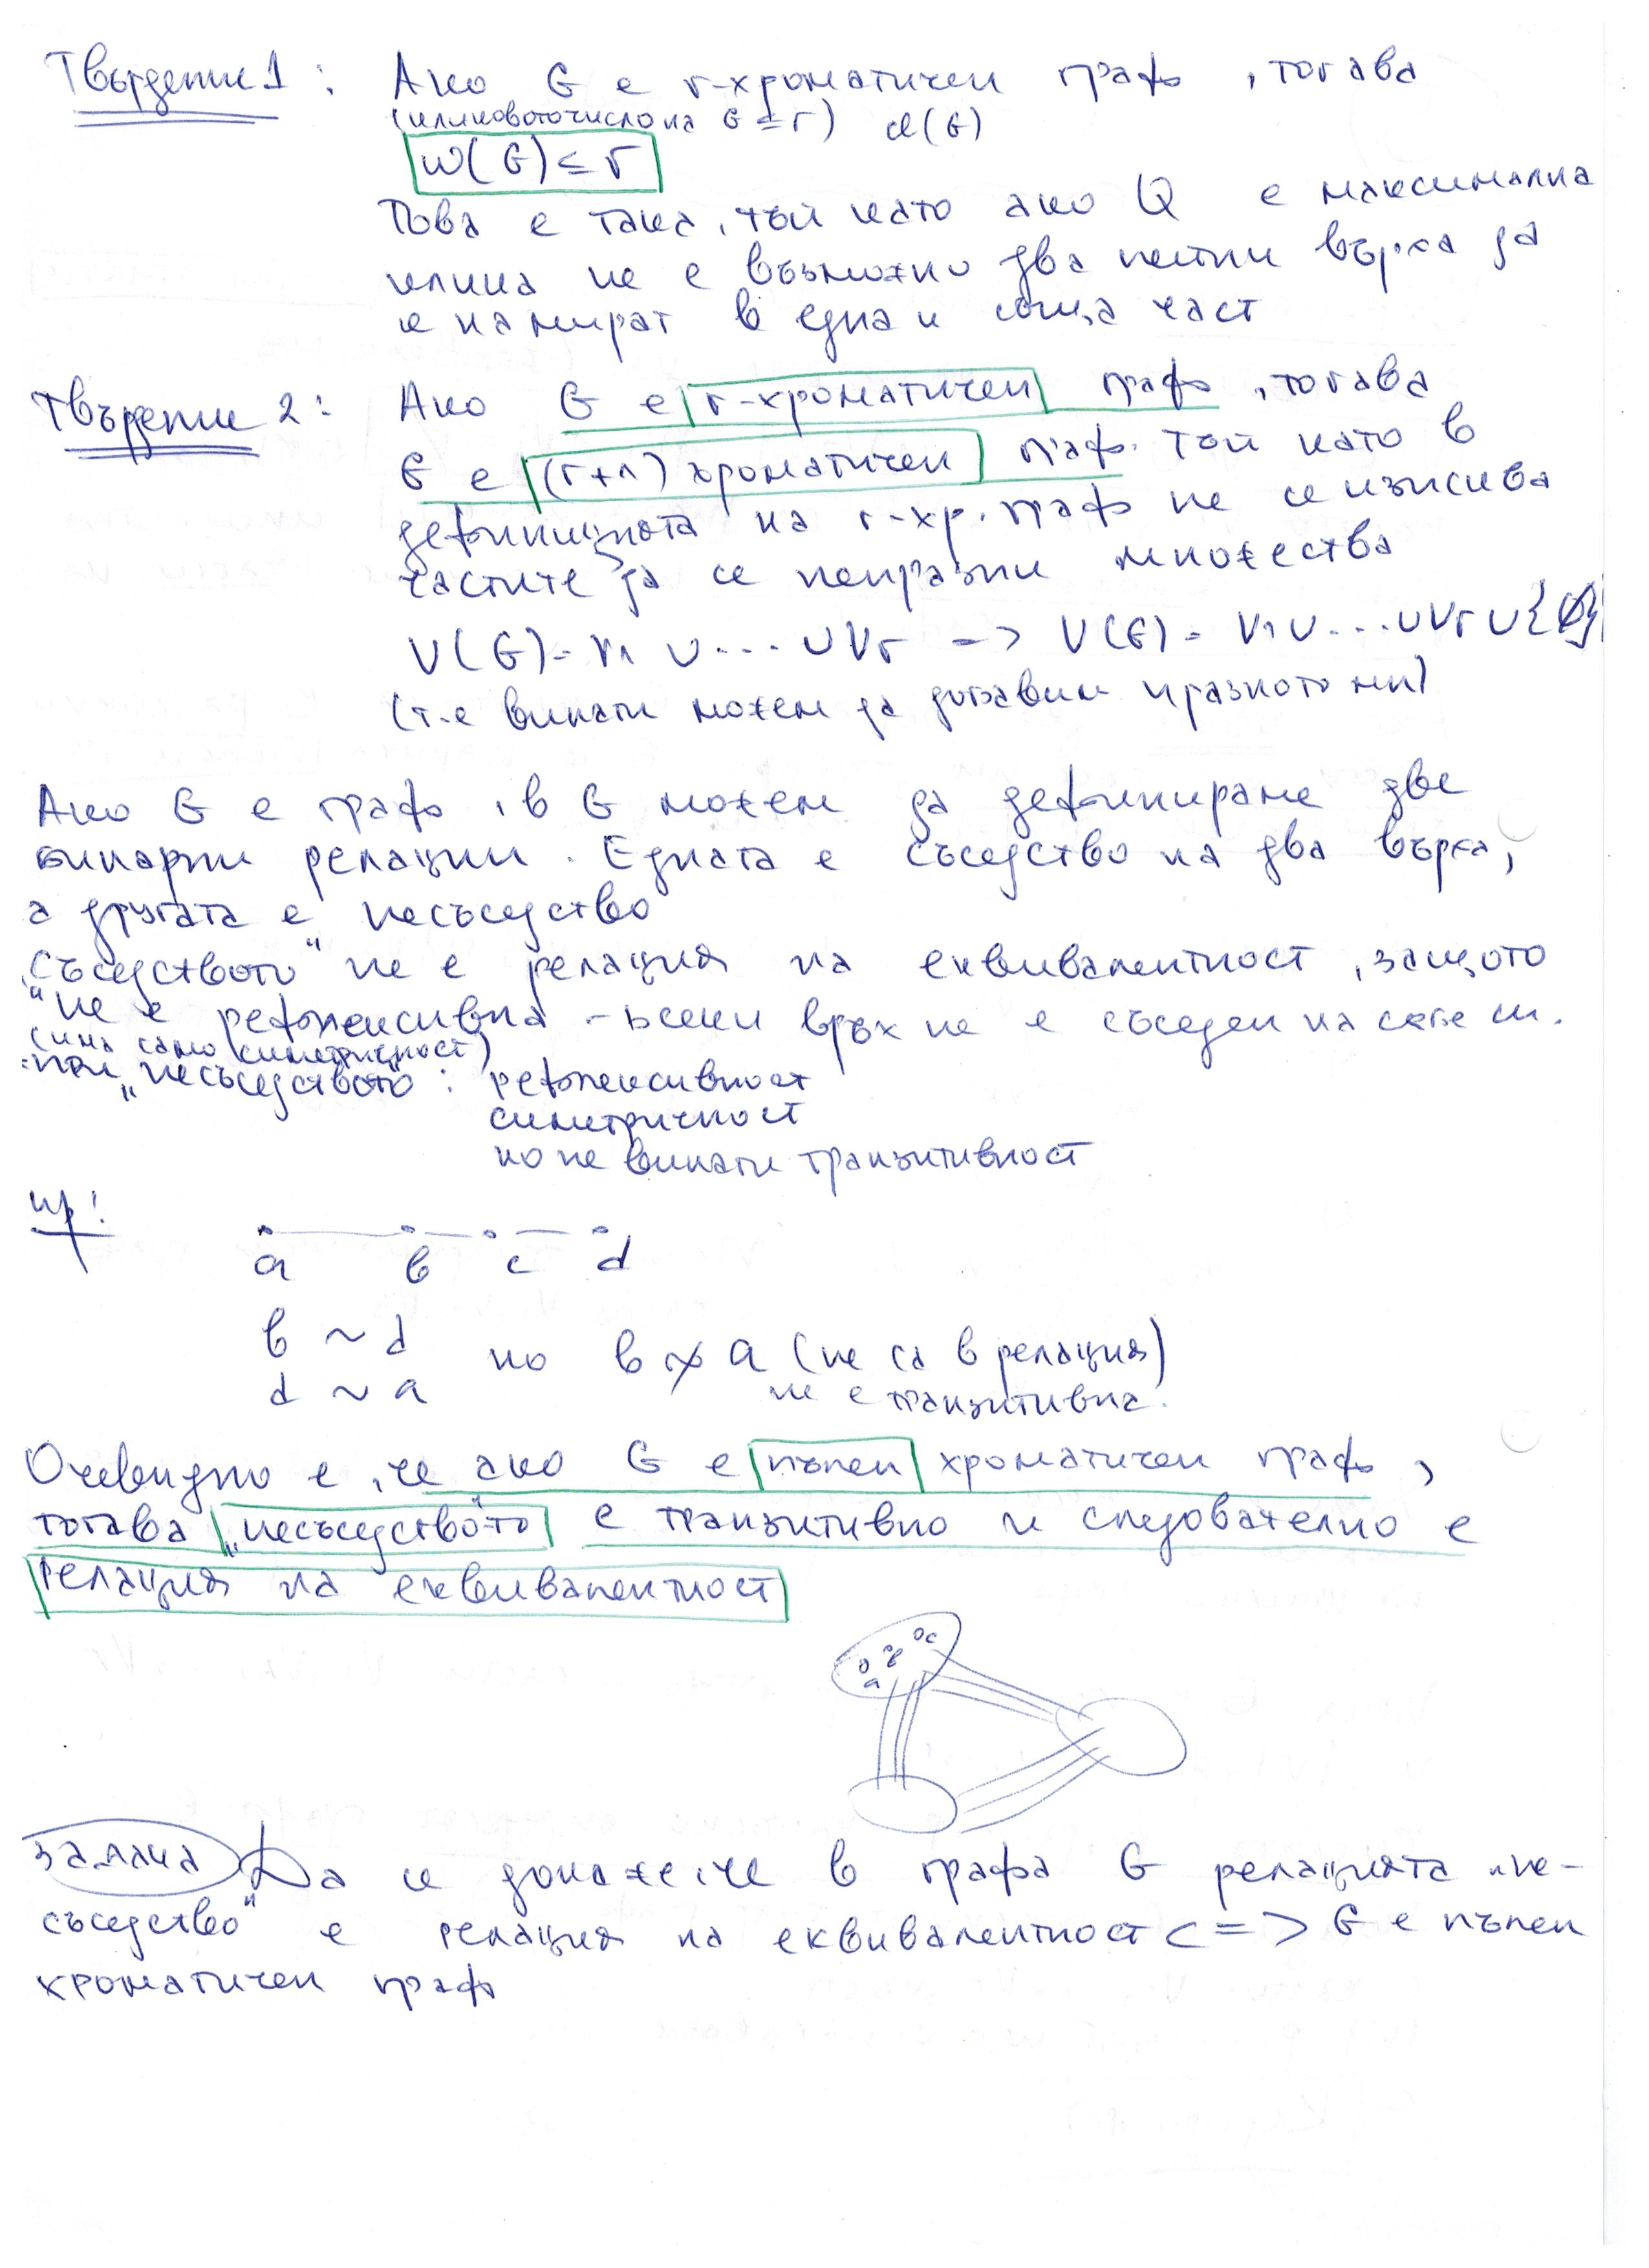 Твърдение 1: Ако G е r-хроматичен граф, тогава
(кликовото число на G ≤ r) cl(G)
ω(G) ≤ r
Това е така, тъй като ако Q е максимална
клика не е възможно два нейни върха да
се намират в една и съща част
Твърдение 2: Ако G е r-хроматичен граф, тогава
G е (r+1) хроматичен граф. Тъй като в
дефиницията на r-хр. граф не се изисква
частите да се непразни множества
V(G) = V1 ∪ ... ∪ Vr => V(G) = V1 ∪ ... ∪ Vr ∪ {∅}
(т.е винаги можем да добавим празното мн)
Ако G е граф, в G можем да дефинираме две
бинарни релации. Едната е съседство на два върха,
а другата е несъседство
"Съседството" не е релация на еквивалентност, защото
не е рефлексивна - всеки връх не е съседен на себе си.
(има само симетричност)
при "несъседството": рефлексивност
симетричност
но не винаги транзитивност
пр:
a в c d
в ~ d
d ~ a
но в ≁ a (не са в релация)
не е транзитивна.
Очевидно е, че ако G е пълен хроматичен граф,
тогава "несъседството" е транзитивно и следователно е
релация на еквивалентност
a в c
задача Да се докаже, че в графа G релацията "не-
съседство" е релация на еквивалентност <=> G е пълен
хроматичен граф